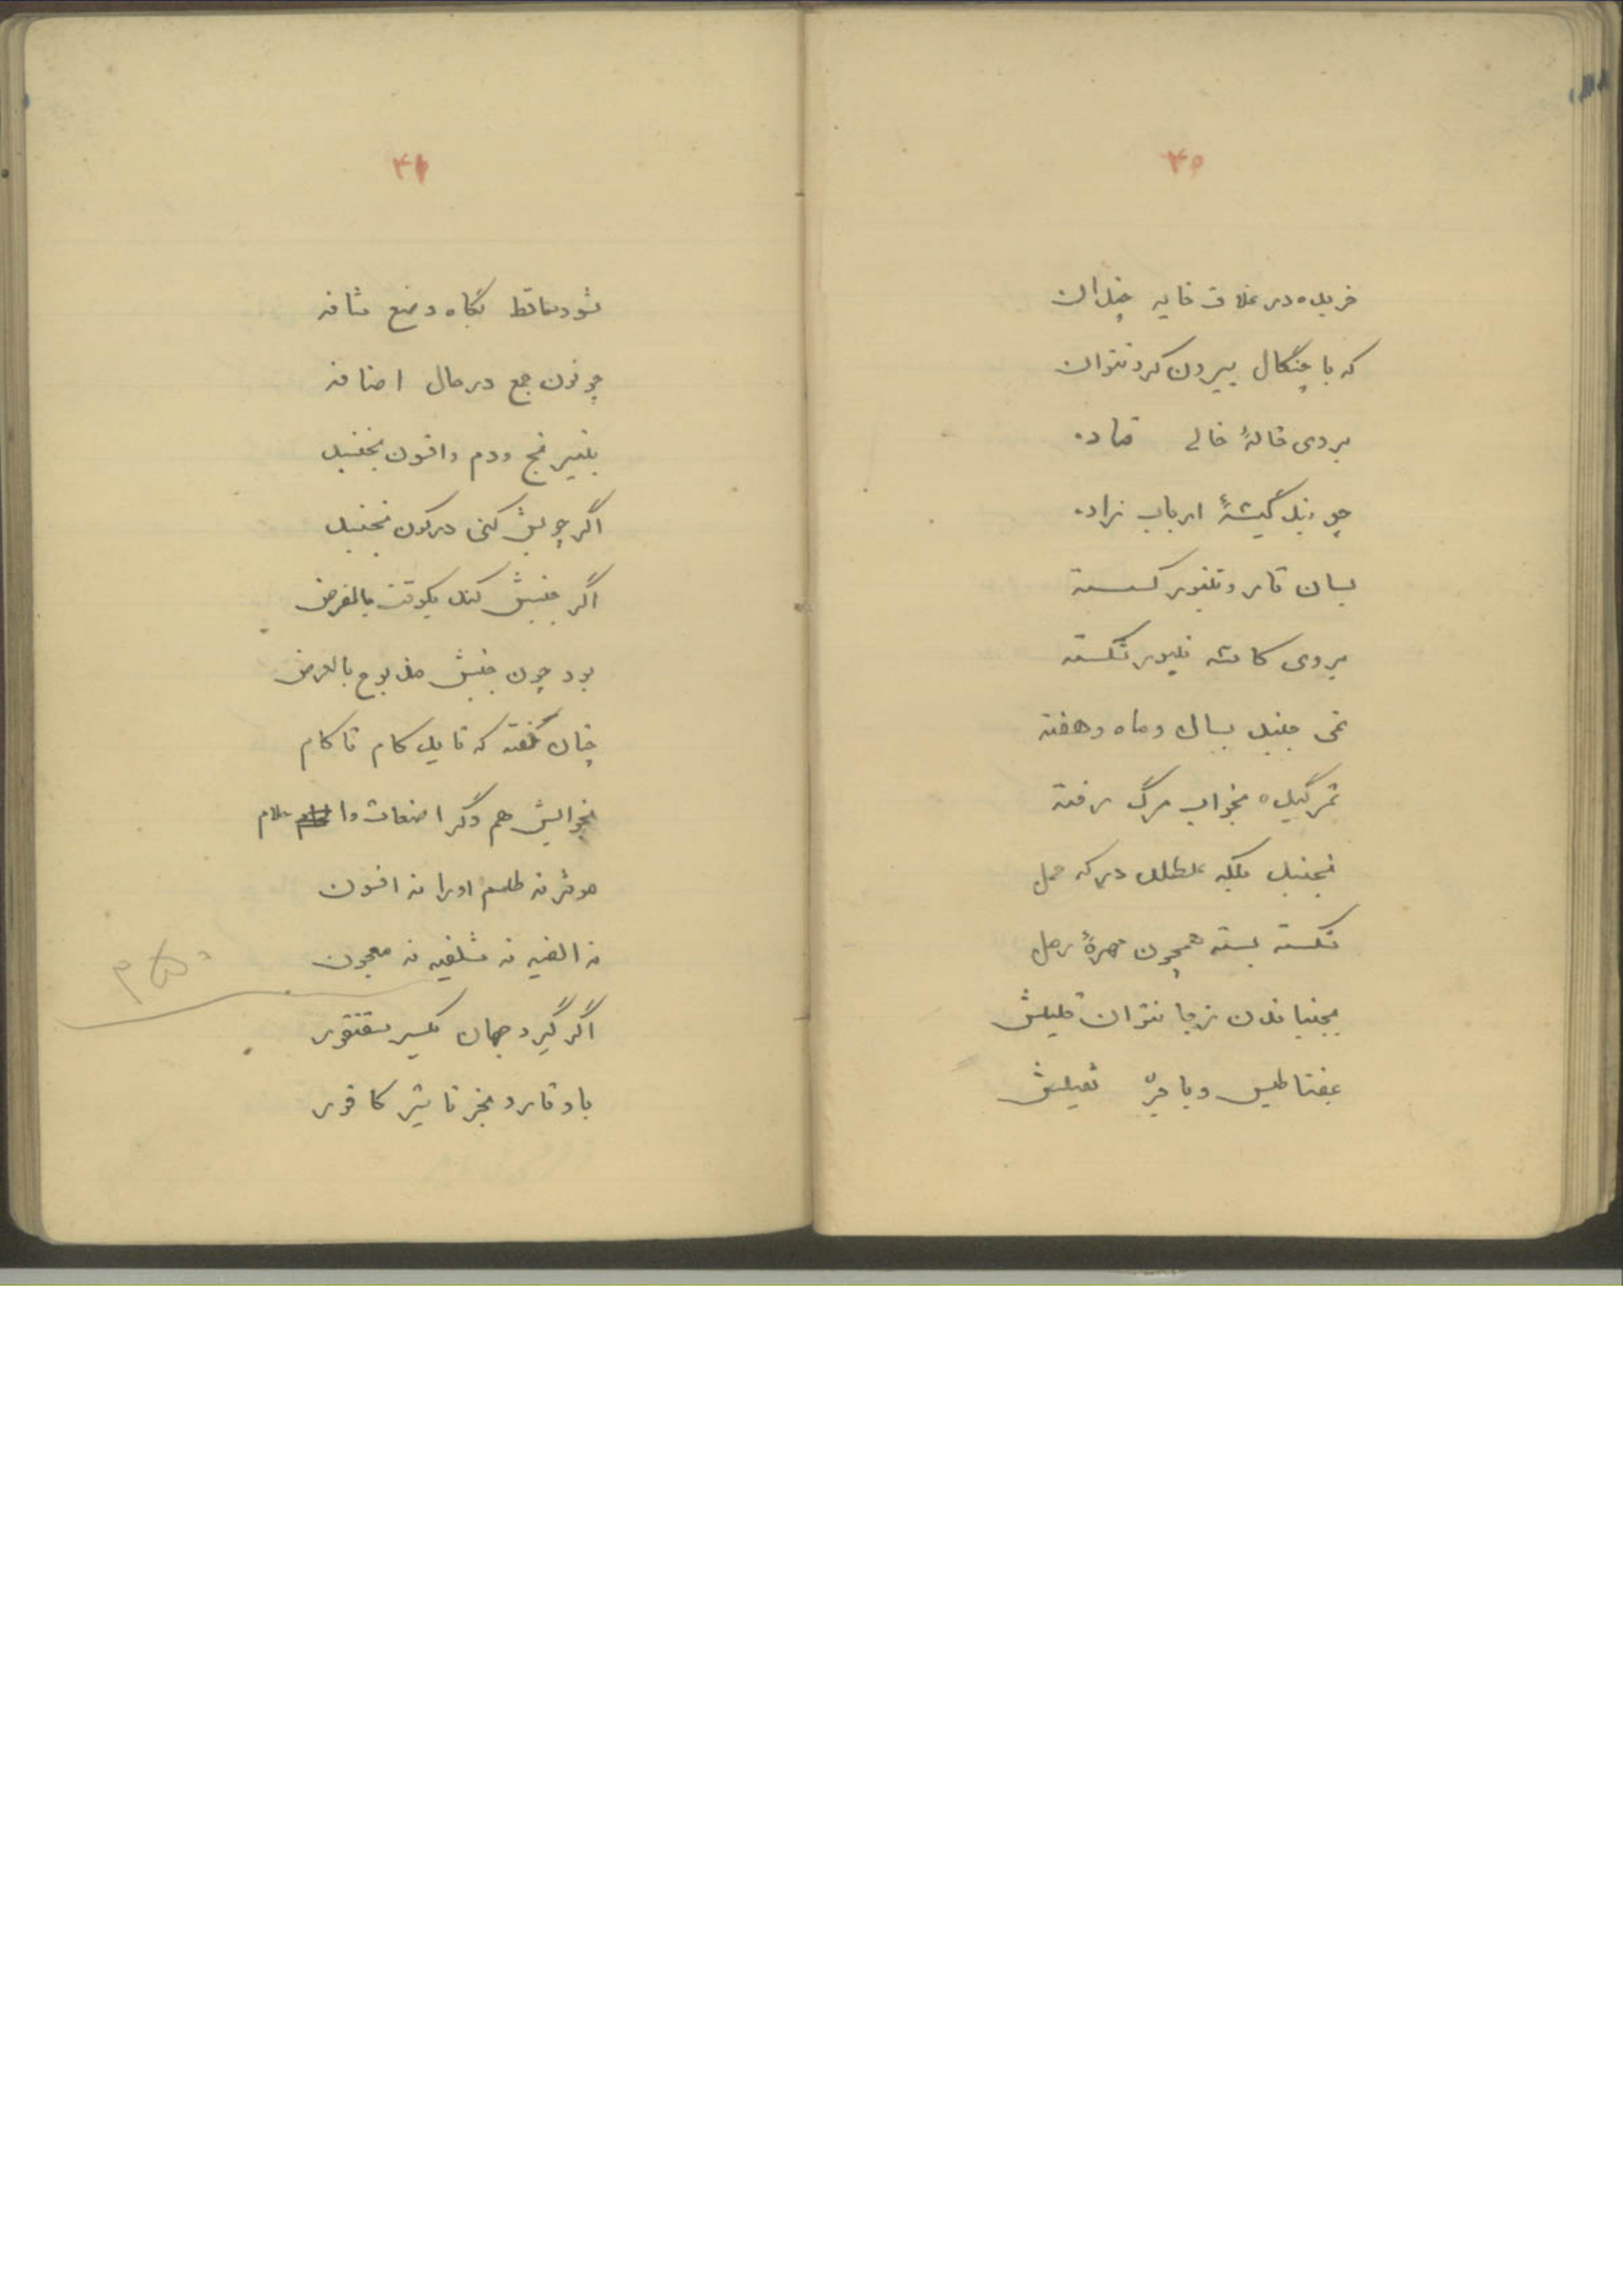 ۴۰
خزیده در غلاف خایه چندان
که با چنگال بیرون کرد نتوان
بروی خالهٔ خالی فتاده
چو بند کیسهٔ ارباب زاده
بسان تار و تنبور گسسته
بروی کاسه تنبور شکسته
نمی جنبد بسال و ماه و هفته
تمرگیده بخواب مرگ رفته
نجنبد بلکه غلطد در که حمل
شکسته بسته همچون مهرهٔ رمل
بجنباندن ز جا نتوان قلیلش
بمغناطیس و با جرّ ثقیلش
۴۱
شود ساقط بگاه وضع مثانه
چو نون جمع در حال اضافه
بغیر نفخ و دم و افسون نجنبد
اگر چوبش کنی در کون نجنبد
اگر جنبش کند یکوقت بالفرض
بود چون جنبش مذبوح بالعرض
چنان خفته که تا ید کام تا کام
بخوابش هم دگر اضغاث و احلام
موثر نه طلسم او را نه افسون
نه الفیه نه شلفیه نه معجون
اگر گیرد جهان یکسر سقنقور
باو ندارد بجز تاثیر کافور